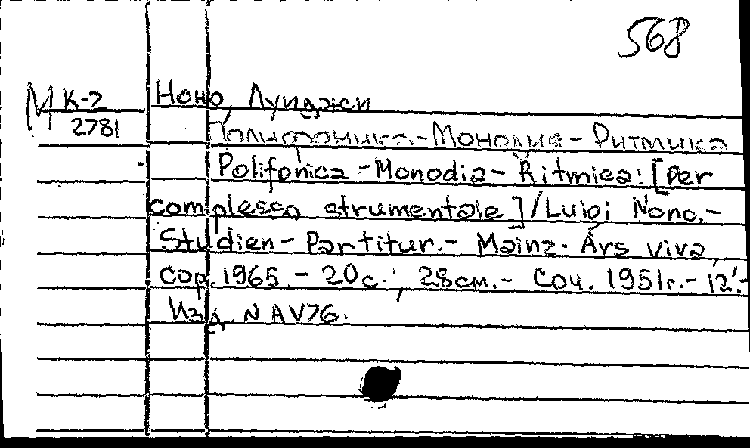 568
М К-2 Ноно, Луиджи
2781 Полифоника-Монодия-Ритмика
Polifonica-Monodia-Ritmica: [per
complesso strumentale]/Luigi Nono.-
Studien-Partitur.- Mainz: Ars viva,
cop. 1965.- 20с.; 28см.- Соч. 1951г.- 12'.-
Изд. N AV76.